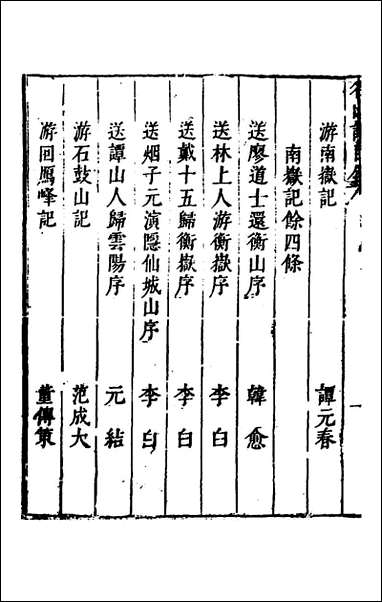 游南嶽記 譚元春
南嶽記餘四條
送廖道士還衡山序 韓愈
送林上人游衡嶽序 李白
送戴十五歸衡嶽序 李白
送烟子元演隱仙城山序 李白
送譚山人歸雲陽序 元結
游石鼓山記 范成大
游回鴈峰記 董傳策